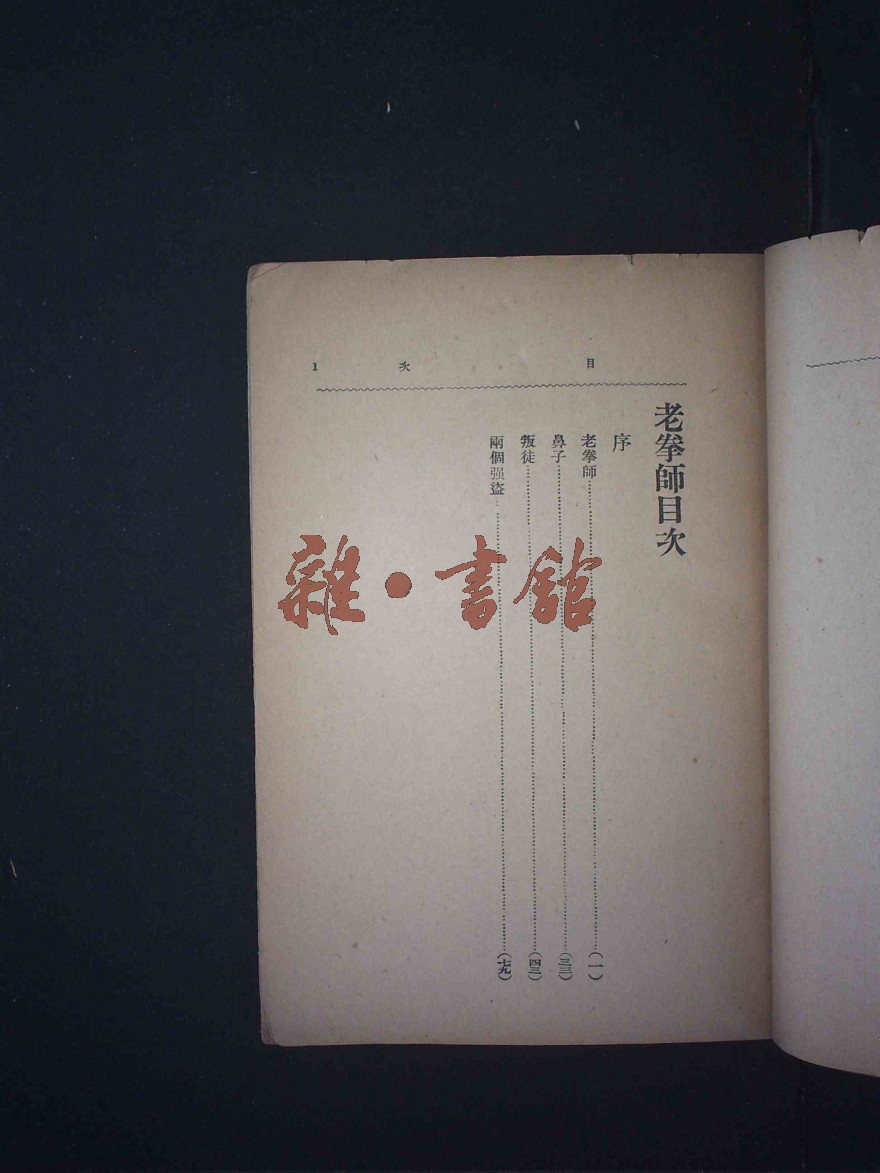 目次 1
老拳師目次
序
老拳師……(一)
鼻子……(三三)
叛徒……(四三)
兩個强盜……(七九)
雜・書館